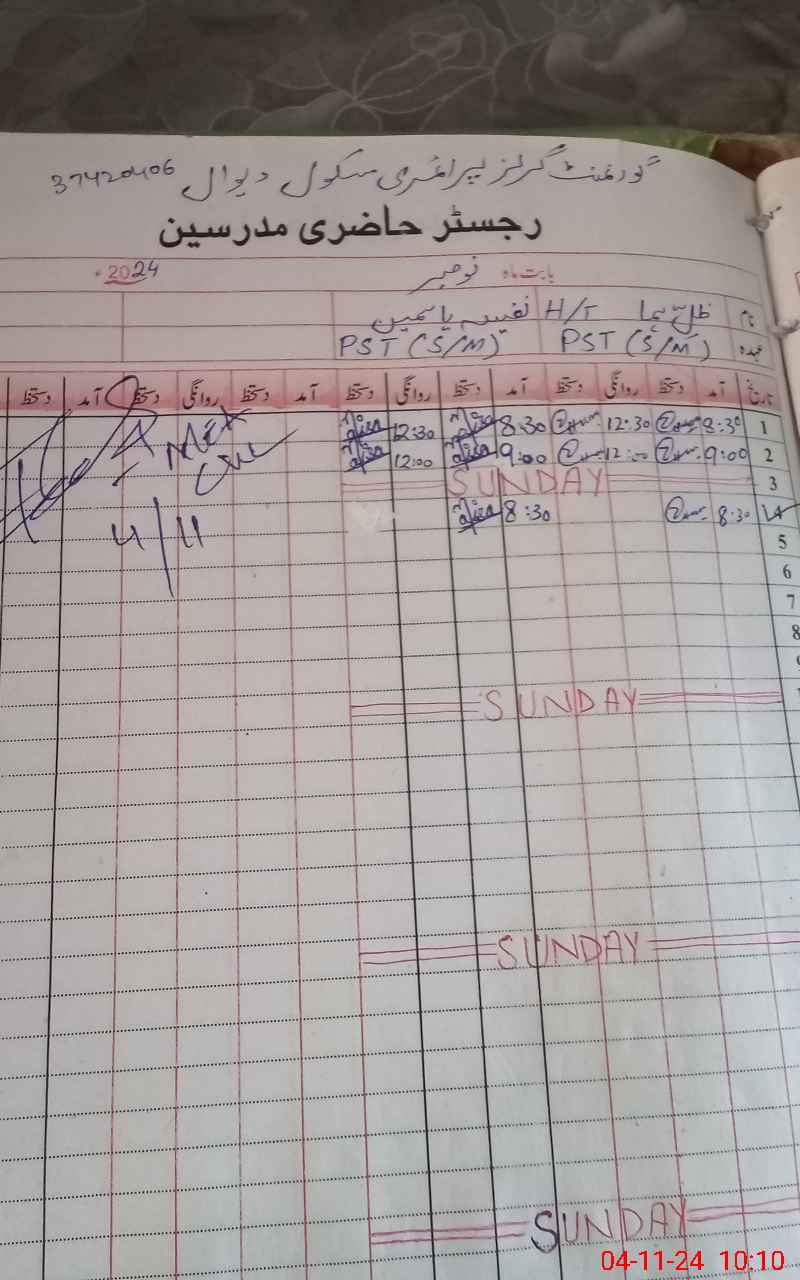 گورنمنٹ گرلز پرائمری سکول دیوال 37420406
رجسٹر حاضری مدرسین
بابت ماہ نومبر 2024ء
نام ظل ہما H/T نفیسہ یاسمین
عہدہ PST (S/M) PST (S/M)
تاریخ آمد دستخط روانگی دستخط آمد دستخط روانگی دستخط آمد دستخط روانگی دستخط آمد دستخط
1 8:30 12:30 8:30 12:30
2 9:00 12:00 9:00 12:00
3 SUNDAY
8:30 8:30
4/11
5
6
7
8
SUNDAY
SUNDAY
SUNDAY
04-11-24 10:10